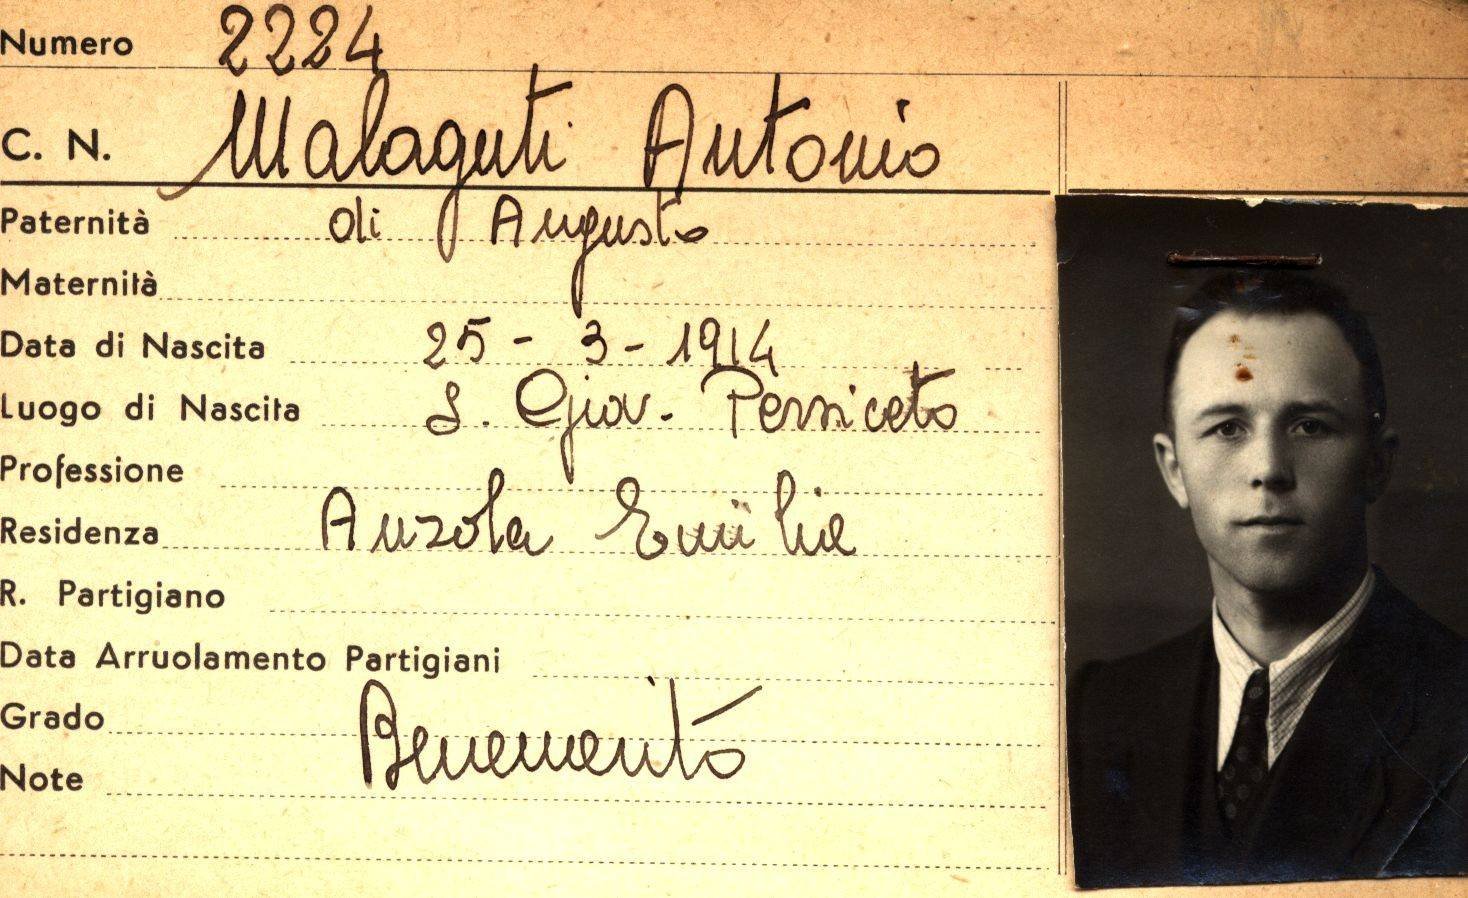 Numero 2224
C. N. Malaguti Antonio
Paternità di Augusto
Maternità
Data di Nascita 25 - 3 - 1914
Luogo di Nascita S. Giov. Persiceto
Professione
Residenza Anzola Emilia
R. Partigiano
Data Arruolamento Partigiani
Grado Benemerito
Note